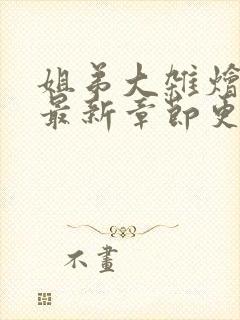 姐弟大雜燴
最新章節更
不畫